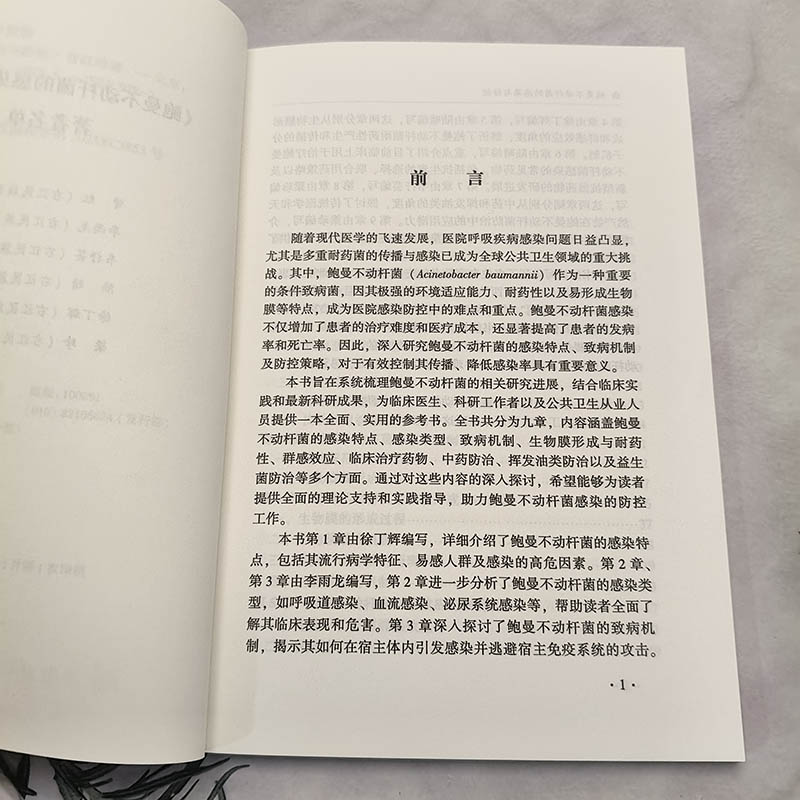 前 言
随着现代医学的飞速发展，医院呼吸疾病感染问题日益凸显，
尤其是多重耐药菌的传播与感染已成为全球公共卫生领域的重大挑
战。其中，鲍曼不动杆菌（Acinetobacter baumannii）作为一种重要
的条件致病菌，因其极强的环境适应能力、耐药性以及易形成生物
膜等特点，成为医院感染防控中的难点和重点。鲍曼不动杆菌感染
不仅增加了患者的治疗难度和医疗成本，还显著提高了患者的发病
率和死亡率。因此，深入研究鲍曼不动杆菌的感染特点、致病机制
及防控策略，对于有效控制其传播、降低感染率具有重要意义。
本书旨在系统梳理鲍曼不动杆菌的相关研究进展，结合临床实
践和最新科研成果，为临床医生、科研工作者以及公共卫生从业人
员提供一本全面、实用的参考书。全书共分为九章，内容涵盖鲍曼
不动杆菌的感染特点、感染类型、致病机制、生物膜形成与耐药
性、群感效应、临床治疗药物、中药防治、挥发油类防治以及益生
菌防治等多个方面。通过对这些内容的深入探讨，希望能够为读者
提供全面的理论支持和实践指导，助力鲍曼不动杆菌感染的防控
工作。
本书第 1 章由徐丁辉编写，详细介绍了鲍曼不动杆菌的感染特
点，包括其流行病学特征、易感人群及感染的高危因素。第 2 章、
第 3 章由李雨龙编写，第 2 章进一步分析了鲍曼不动杆菌的感染类
型，如呼吸道感染、血流感染、泌尿系统感染等，帮助读者全面了
解其临床表现和危害。第 3 章深入探讨了鲍曼不动杆菌的致病机
制，揭示其如何在宿主体内引发感染并逃避宿主免疫系统的攻击。
· 1 ·